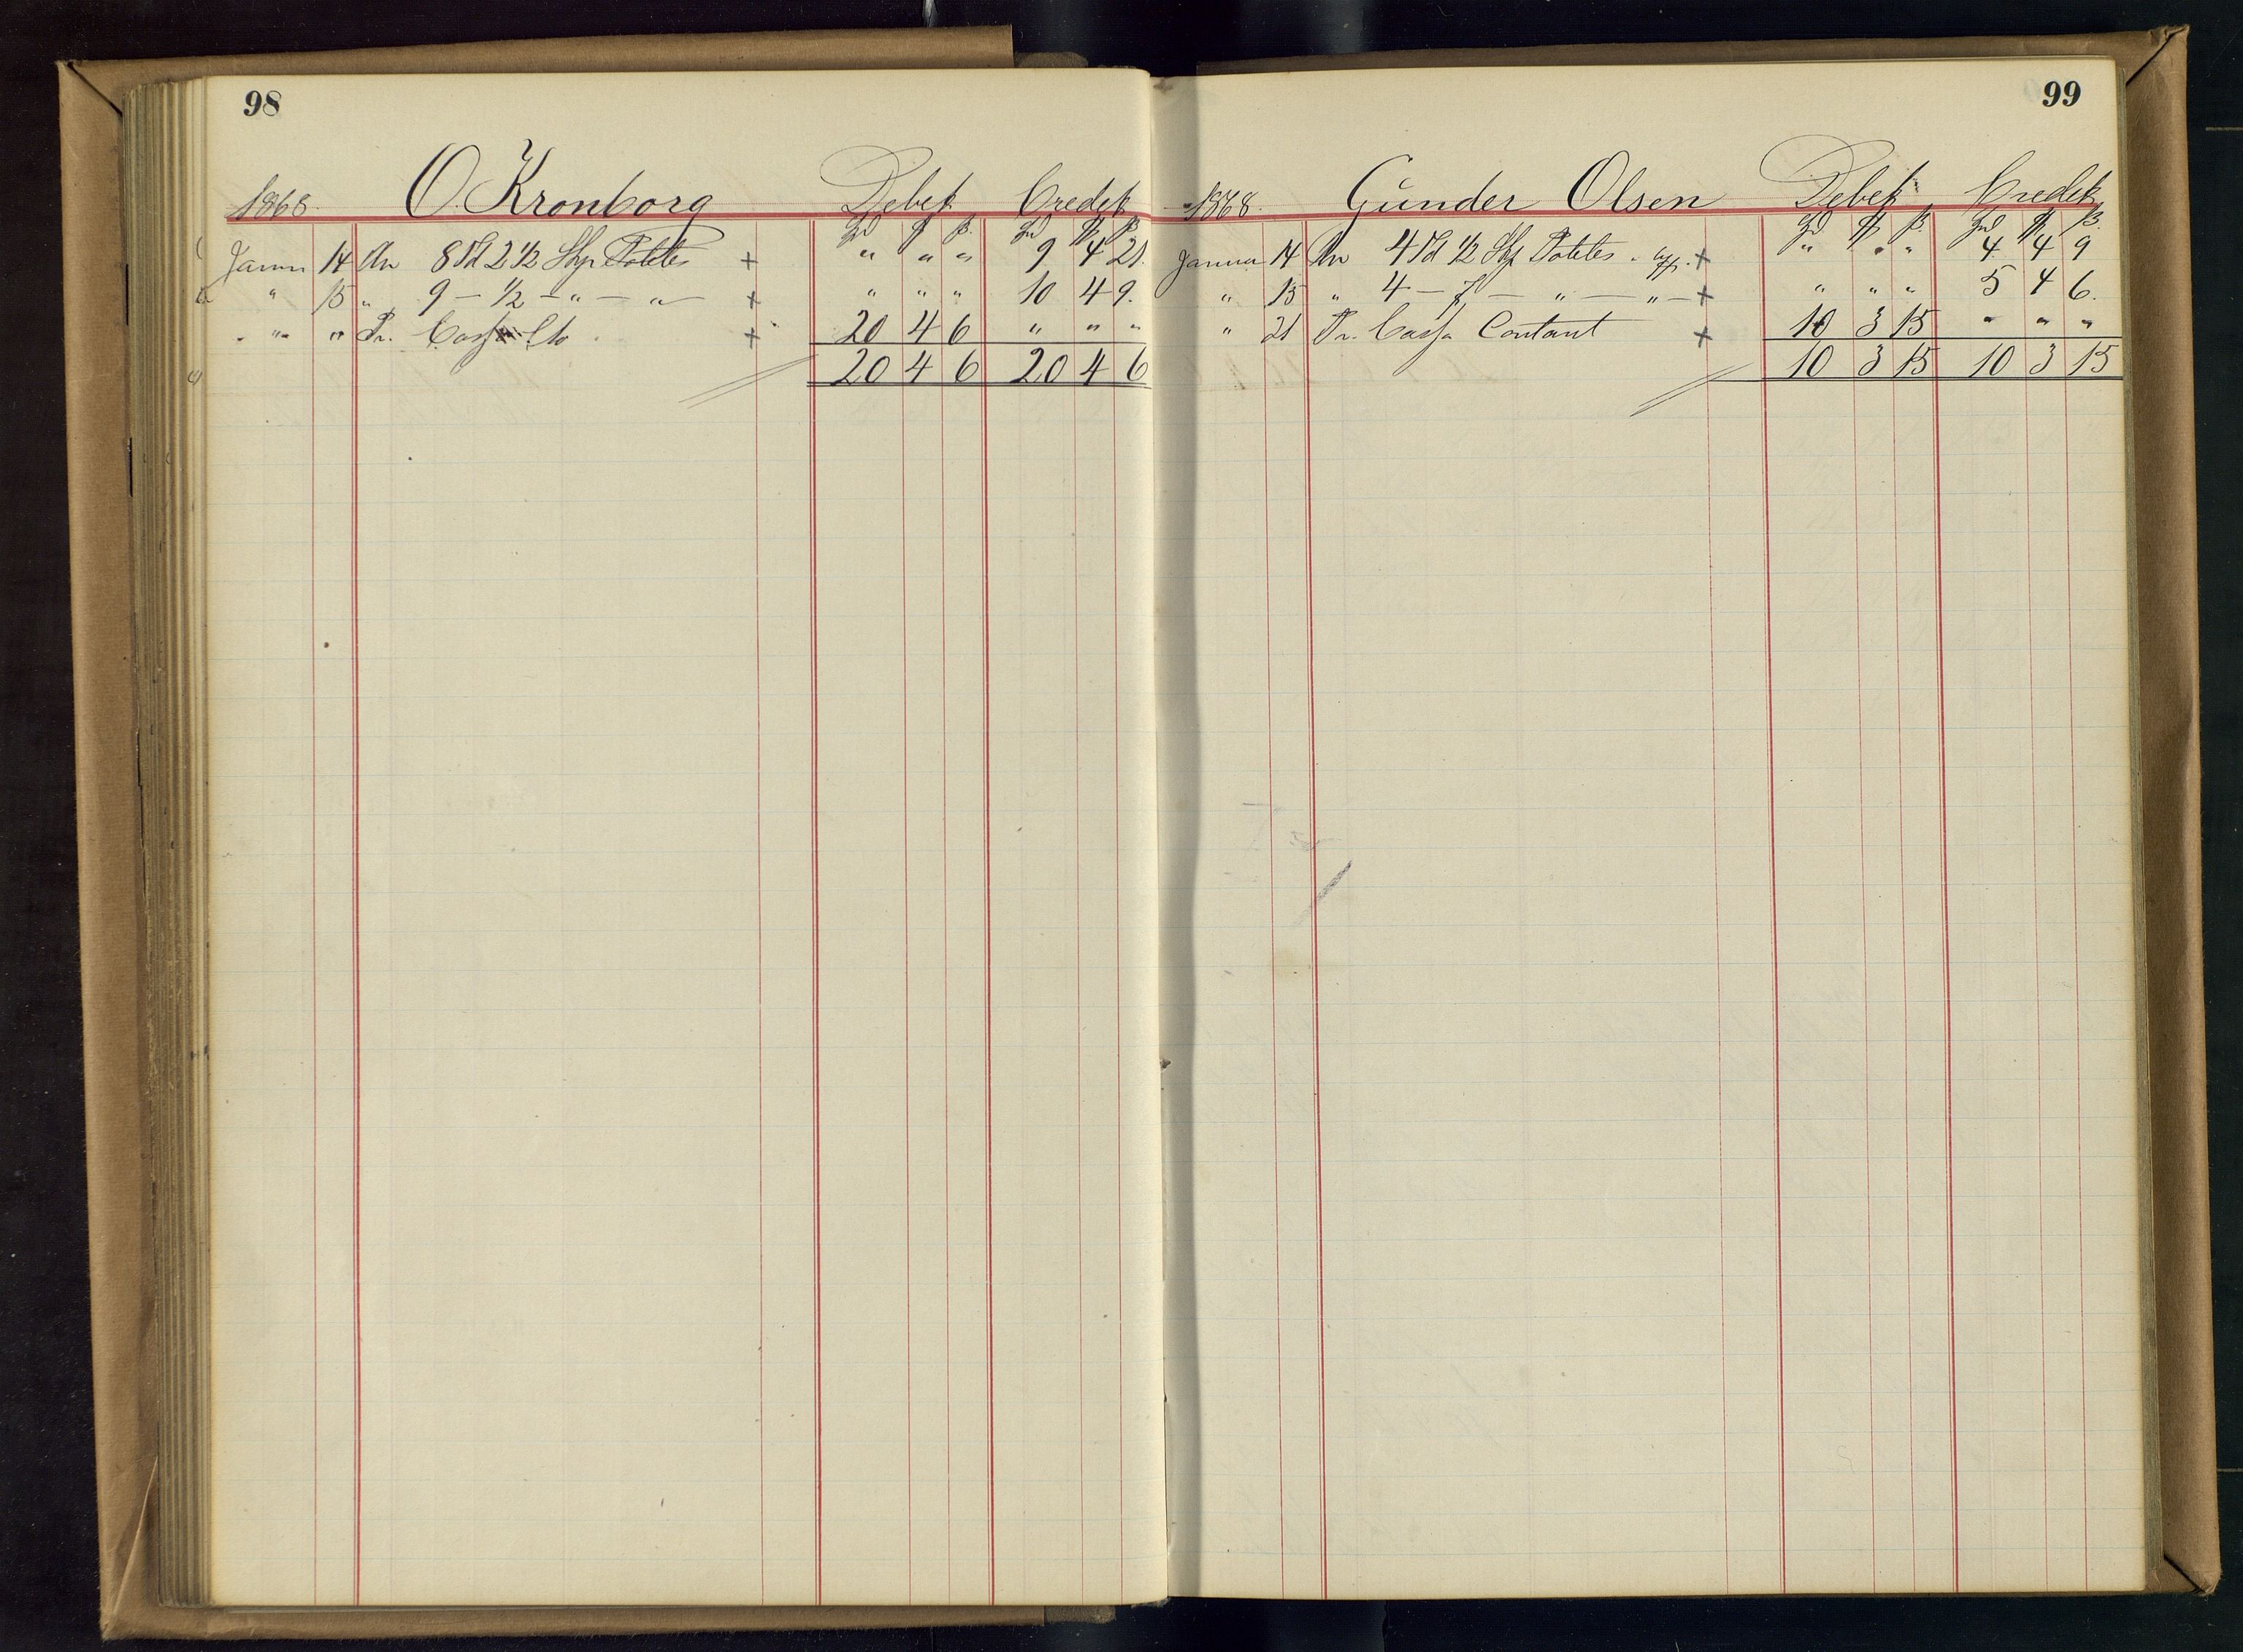 98
1868. O. Kronborg Debet Credit
Spd ₰ β. Spd ₰ β.
Januar 14 An 8 Td 2 1/2 Skp Potetes + " " " 9 4 21.
" 15 " 9 — 1/2 — " — " — + " " " 10 4 9.
" " " Pr. Cassa Cto + 20 4 6 " " "
20 4 6 20 4 6
99
1868. Gunder Olsen Debet Credit
Spd ₰ β. Spd ₰ β.
Januar 14 An 4 Td 1/2 Skp Potetes + " " " 4 4 9
" 15 " 4 — 7 — " — " — + " " " 5 4 6.
" 21 Pr. Cassa Contant + 10 3 15 " " "
10 3 15 10 3 15